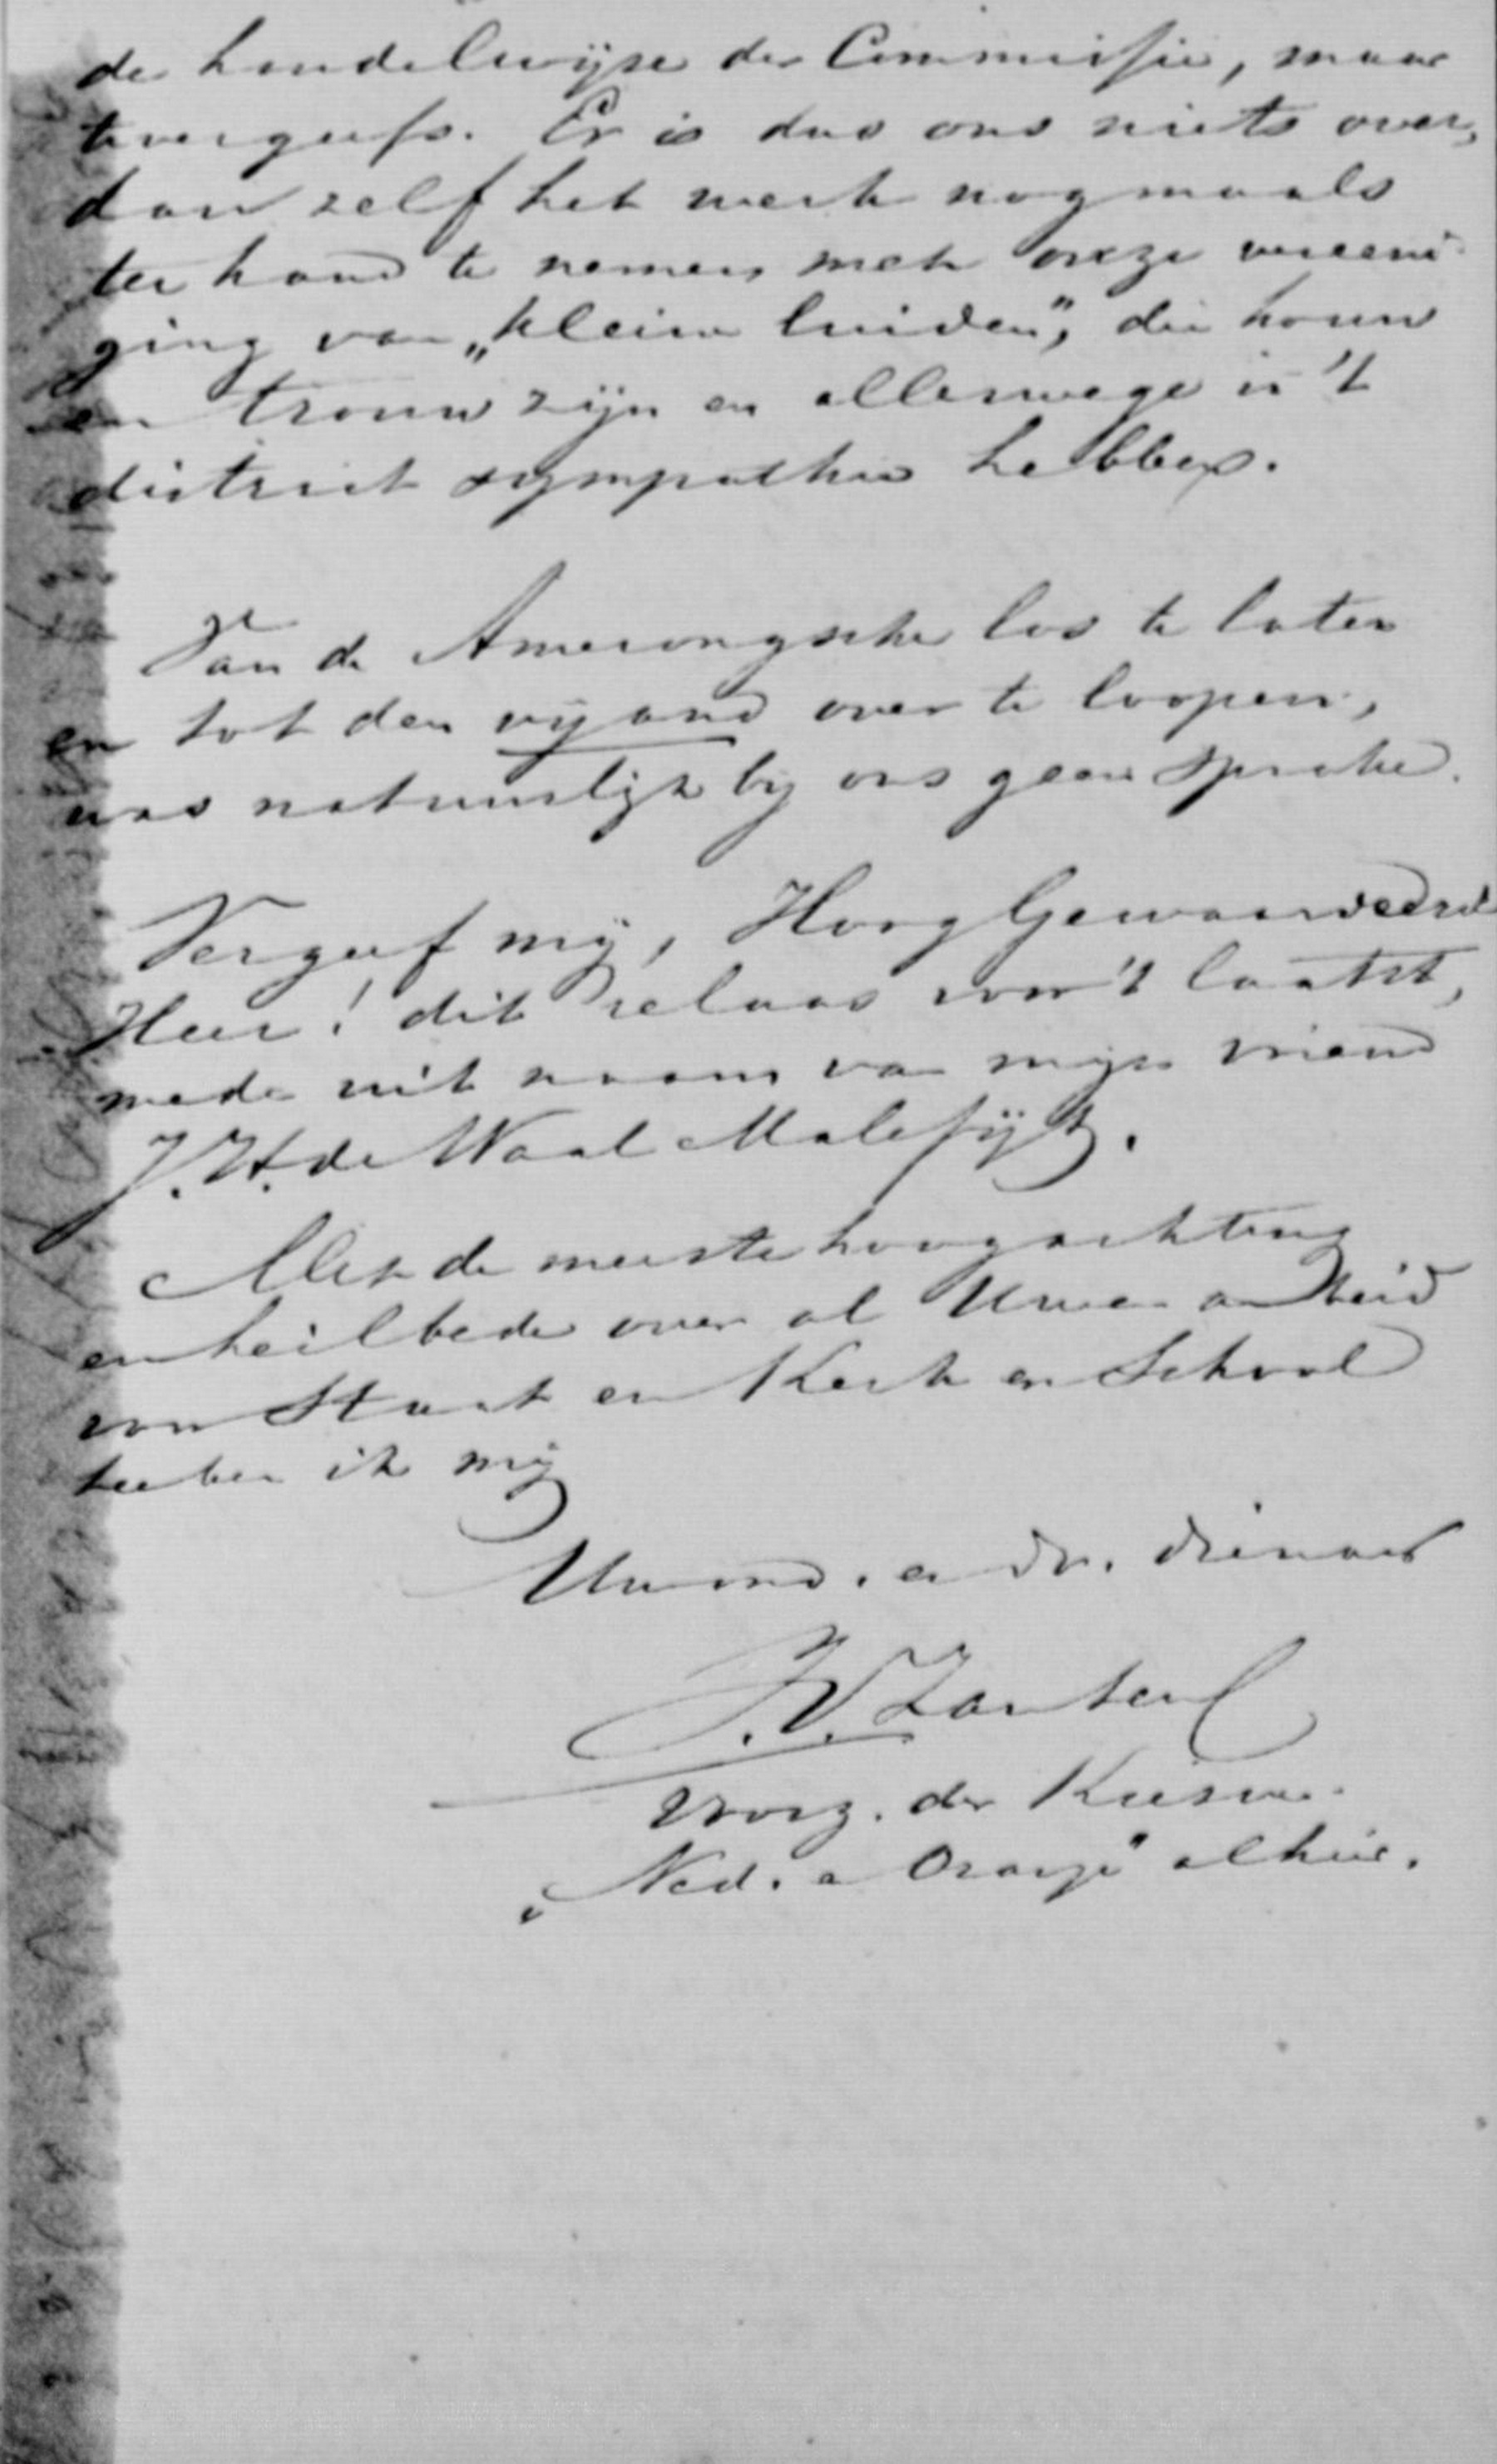 de handelwijze der Commissie, maar
tevergeefs. Er is dus ons niets over,
dan zelf het werk nogmaals
ter hand te nemen met onze vereeni
ging van „kleine luiden", die houw
en trouw zijn en allerwege in 't
district sympathie hebben.
Van de Amerongsche los te laten
en tot den vyand over te loopen,
was natuurlijk by ons geen sprake.
Vergeef mij, HoogGewaardeerde
Heer! dit relaas voor 't laatst,
mede uit naam van mijn vriend
J. H. de Waal Malefijt.
Met de meeste hoogachting
en heilbede over al Uwen arbeid
voor Staat en Kerk en School
teeken ik mij
Uw ond. en dv. dienaar
J. V. Zanten
Voorz. der Kiesver.
„Ned. en Oranje" alhier.